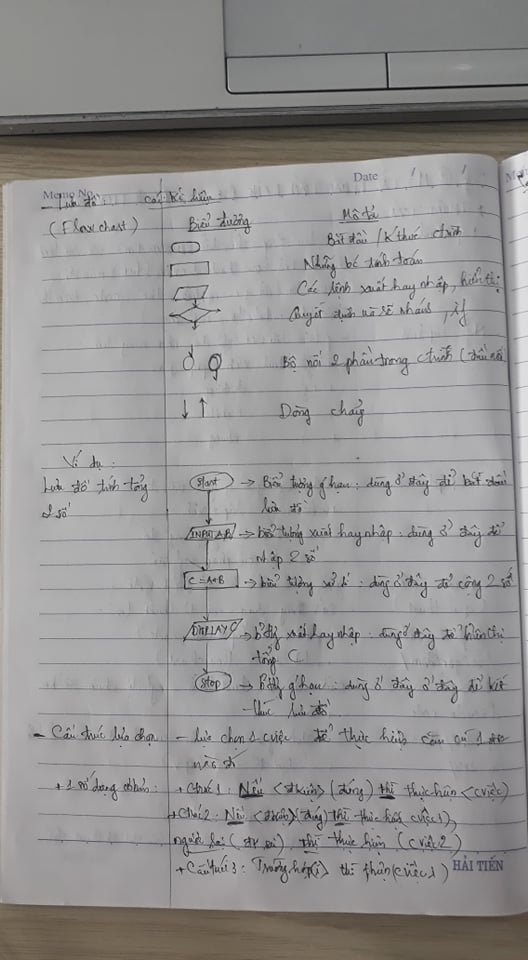 Memo No.
Date / /
- Lưu đồ: các kí hiệu:
(Flow chart) Biểu tượng Mô tả
Bắt đầu / k thúc ctrình
Những bc tính toán
Các lệnh xuất hay nhập, hiển thị
Quyết định và rẽ nhánh, if
Bộ nối 2 phần trong ctrình (đầu nối
Dòng chảy
Ví dụ:
Lưu đồ tính tổng
2 số
Start → Biểu tượng g'hạn: dùng ở đây để bắt đầu
lưu đồ
INPUT A,B → biểu tượng xuất hay nhập: dùng ở đây để
nhập 2 số
C = A+B → biểu tượng xử lí: dùng ở đây để cộng 2 số
DISPLAY C → xuất hay nhập: dùng ở đây để hiển thị
tổng C
Stop → g'hạn: dùng ở đây ở đây để kết
thúc lưu đồ
- Cấu trúc lựa chọn - lựa chọn 1 cviệc để thực hiện căn cứ 1 đk
nào đó
+ 1 số dạng cơ bản: + Ctrúc 1: Nếu <đkiện> (đúng) thì thực hiện <cviệc>
+ Ctrúc 2: Nếu <đkiện> (đúng) thì thực hiện cviệc 1,
ngược lại (đk sai) thì thực hiện (cviệc 2)
+ Cấu trúc 3: Trường hợp (i) thì (cviệc 1)
HẢI TIẾN